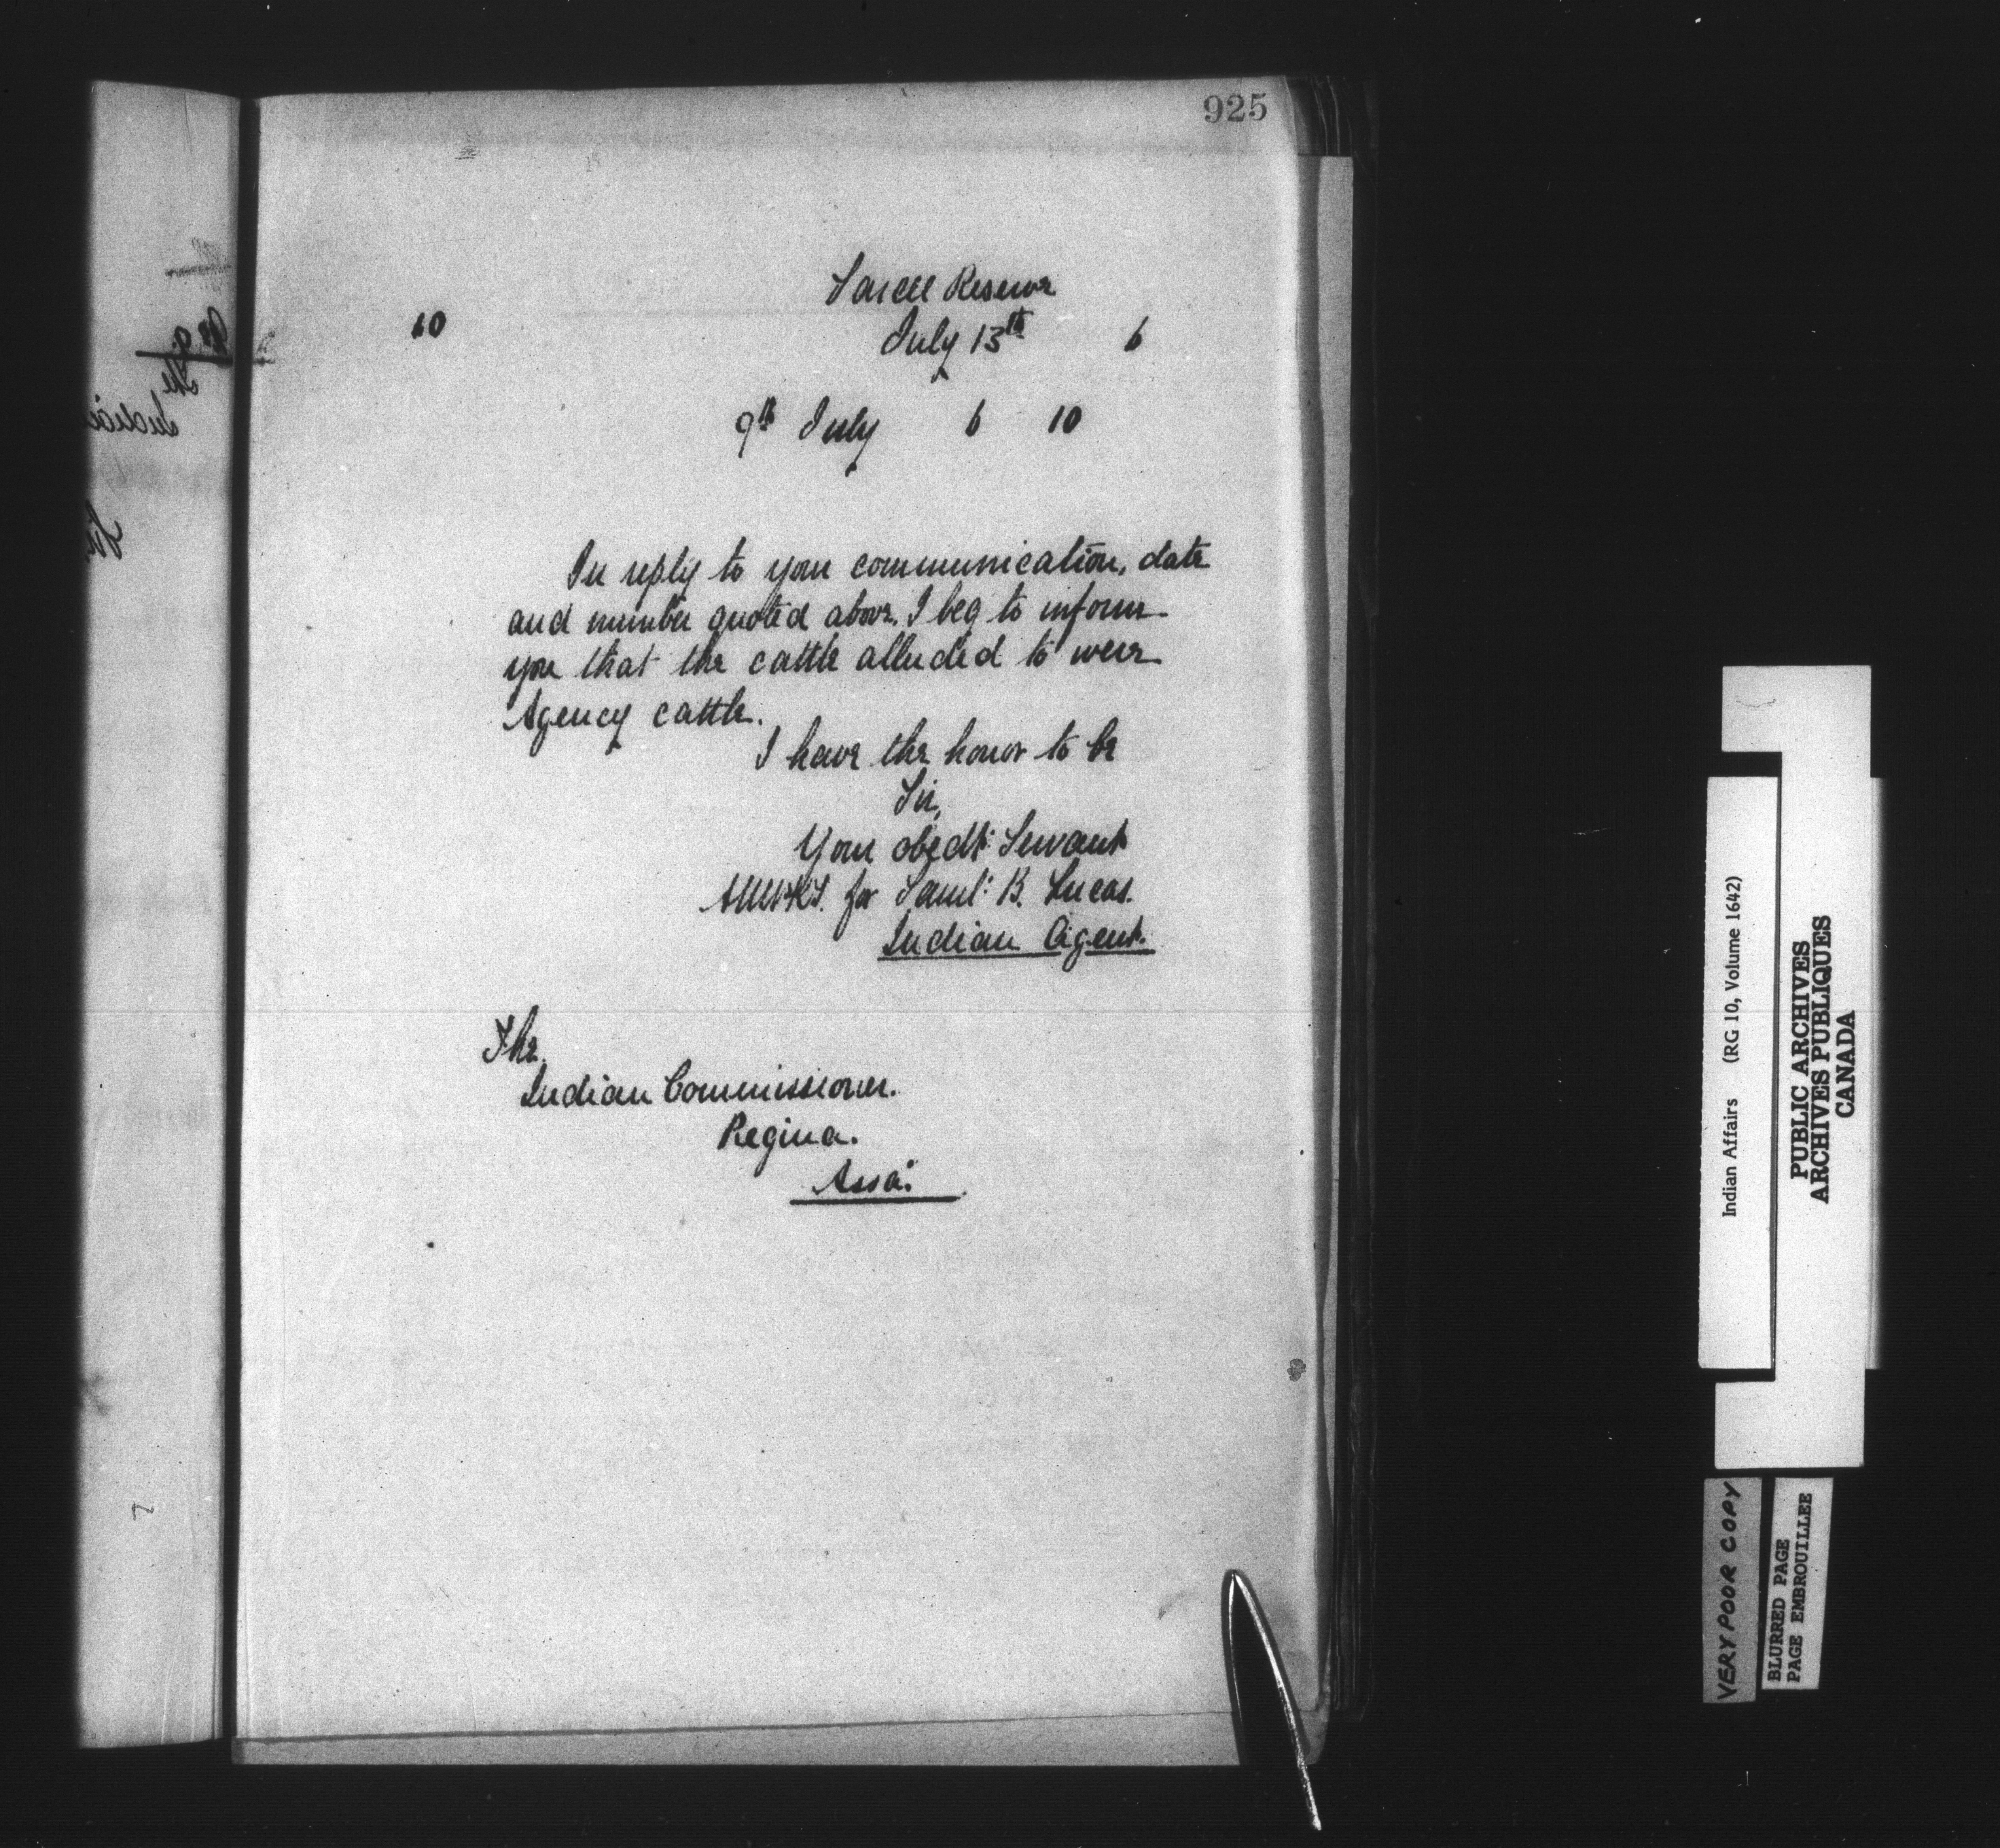 925
Sarcee Reserve
10 July 13th 6
9th July 6 10
In reply to your communication, date
and number quoted above. I beg to inform
you that the cattle alluded to were
Agency cattle.
I have the honor to be
Sir,
Your obedt: Servant
for Saml: B. Lucas.
Indian Agent.
The
Indian Commissioner.
Regina.
Assa:
Indian Affairs (RG 10, Volume 1642)
PUBLIC ARCHIVES
ARCHIVES PUBLIQUES
CANADA
VERY POOR COPY
BLURRED PAGE
PAGE EMBROUILLEE